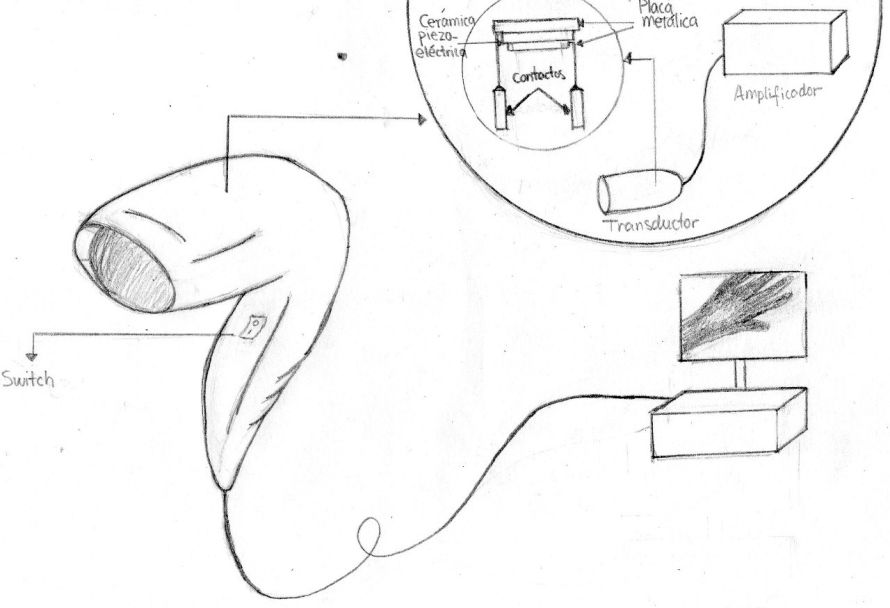 Cerámica
piezo-
eléctrica
Placa
metálica
contactos
Amplificador
Transductor
Switch